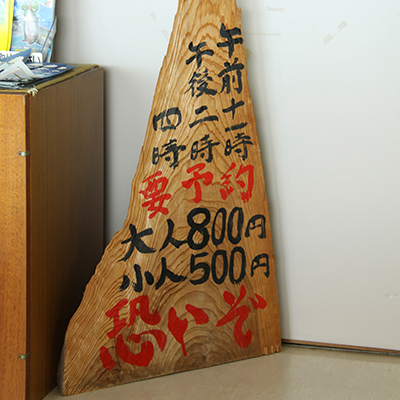 午前十一時
午後二時
四時
要予約
大人800円
小人500円
恐いぞ